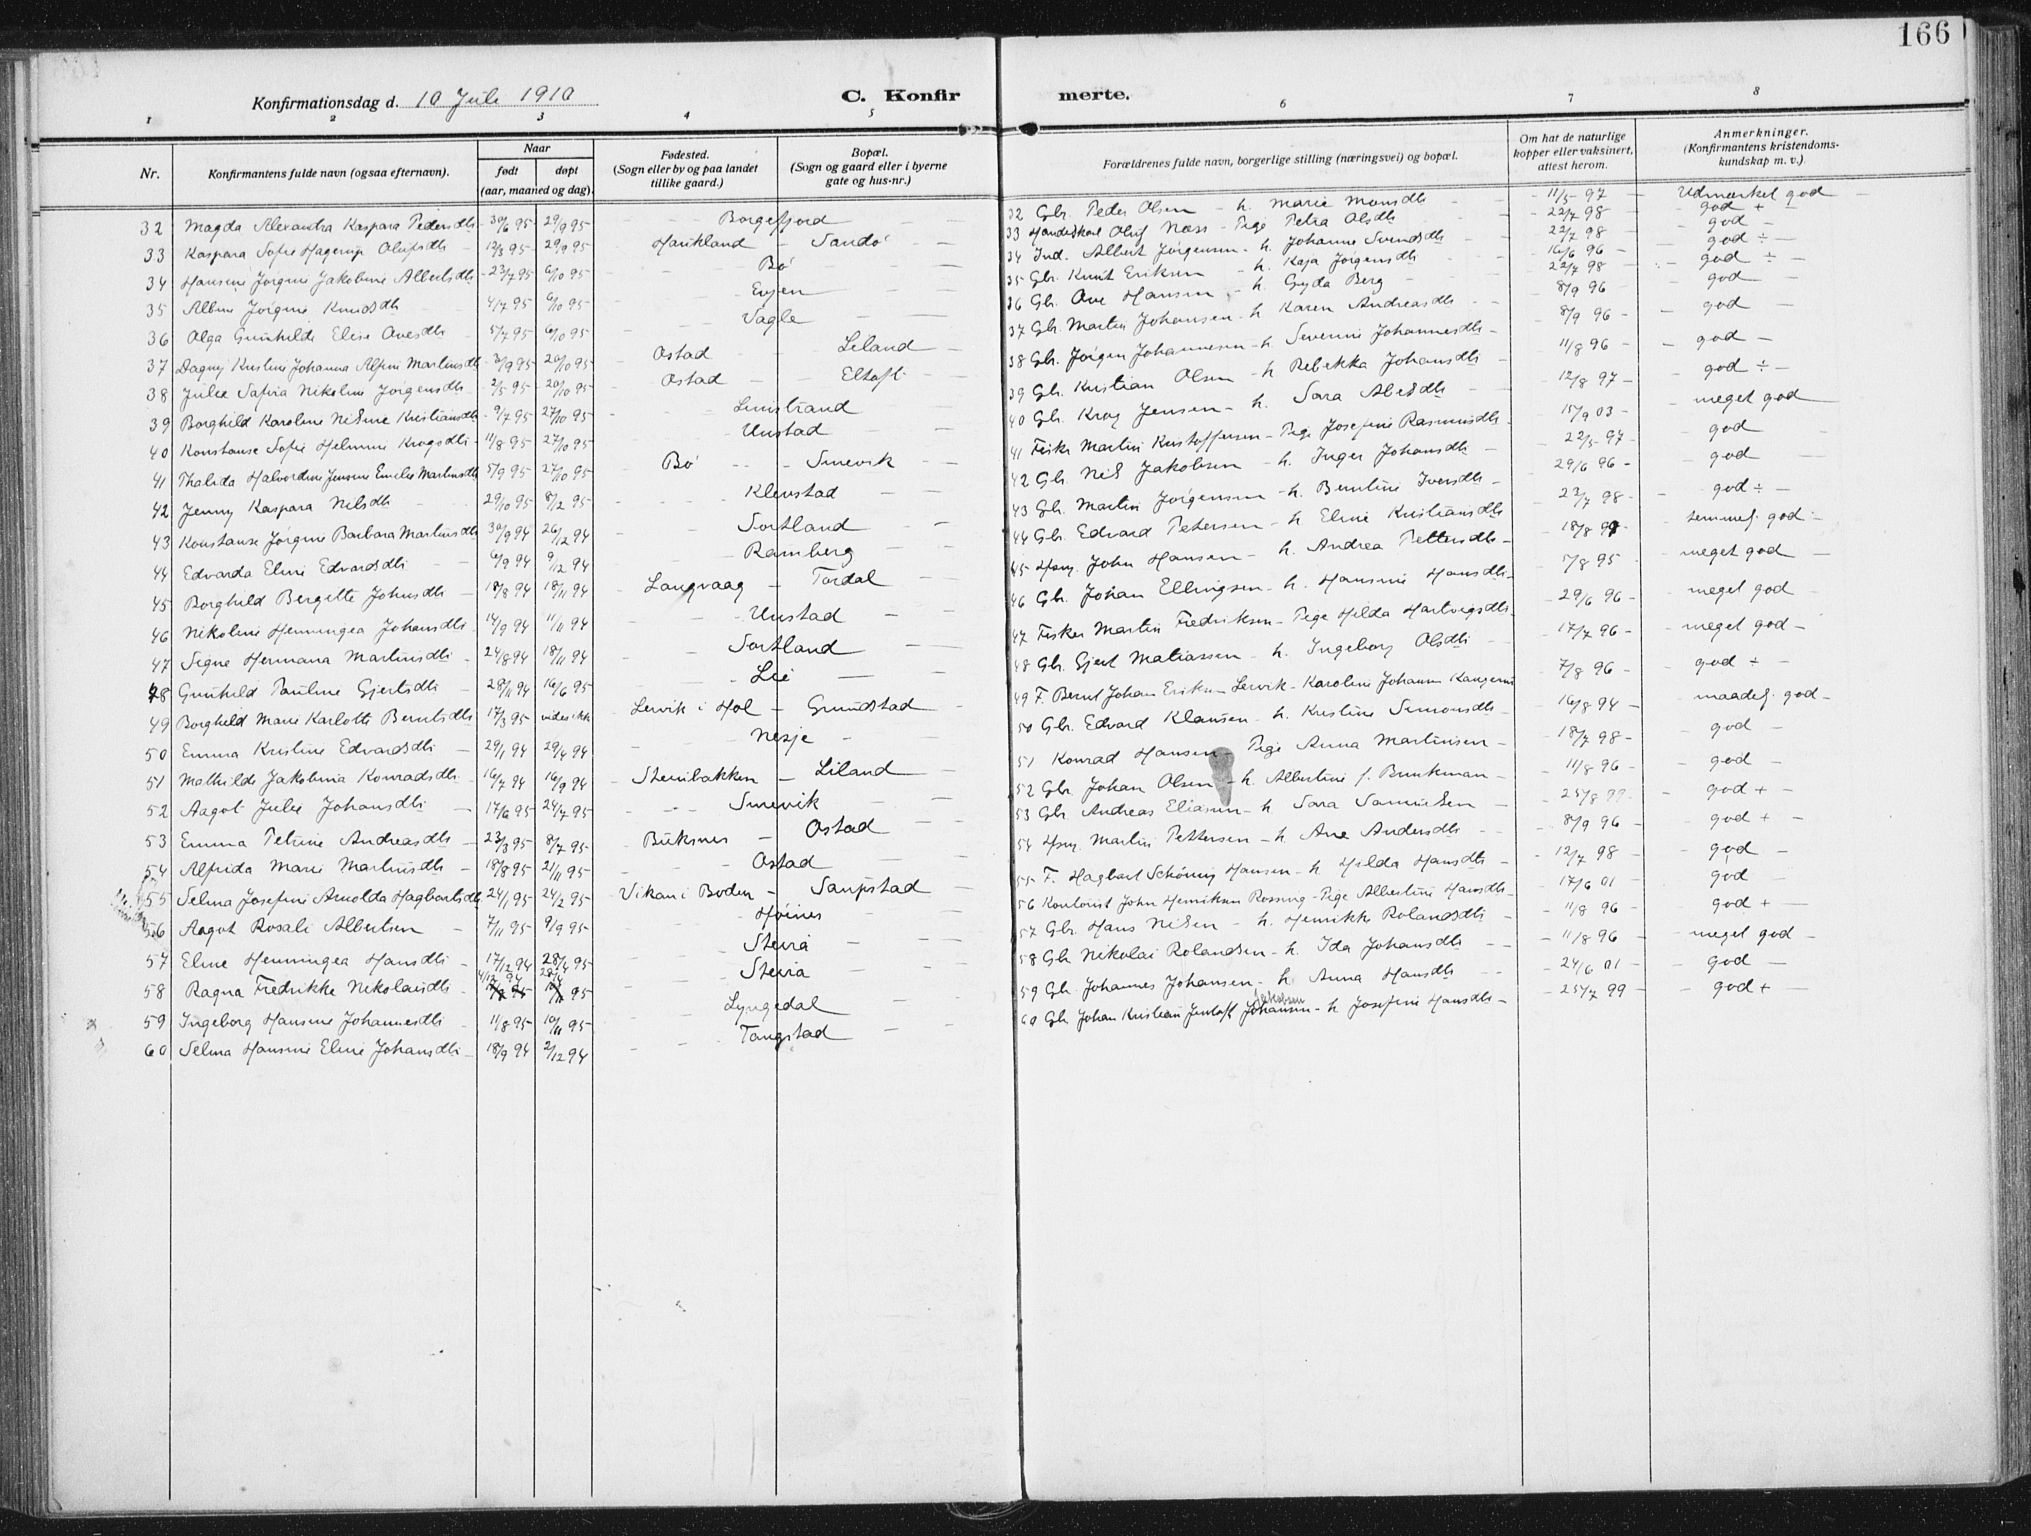 166
Konfirmationsdag d. 10 Juli 1910
C. Konfirmerte.
1 2 3 4 5 6 7 8
Nr.
Konfirmantens fulde navn (ogsaa efternavn).
Naar
født døpt
(aar, maaned og dag).
Fødested.
(Sogn eller by og paa landet
tillike gaard.)
Bopæl.
(Sogn og gaard eller i byerne
gate og hus-nr.)
Forældrenes fulde navn, borgerlige stilling (næringsvei) og bopæl.
Om hat de naturlige
kopper eller vaksinert,
attest herom.
Anmerkninger.
(Konfirmantens kristendoms-
kundskap m. v.)
32 Magda Alexandra Kaspara Pedersdtr 30/6 95 29/9 95 Borgefjord 32 Gbr. Peder Olsen - h. Marie Monsdtr 11/5 97 Udmerket god
33 Kaspara Sofie Hagerup Olufsdtr 12/3 95 29/9 95 Haukland - Sandø 33 Handelskarl Oluf Næss - Pige Petra Olsdtr 22/7 98 god +
34 Hansine Jørgine Jakobine Albertsdtr 23/7 95 6/10 95 Bø 34 Ind. Albert Jørgensen - h. Johanne Svendsdtr 22/7 98 god
35 Albine Jørgine Knudsdtr 4/7 95 6/10 95 Evjen 35 Gbr. Knut Eriksen - h. Kaja Jørgensdtr 16/6 96 god ÷
36 Olga Gunhilde Elise Ovesdtr 5/7 95 6/10 95 Vagle 36 Gbr. Ove Hansen - h. Gyda Berg 22/7 98 god ÷
37 Dagny Kristine Johanna Alfine Martinsdtr 3/9 95 20/10 95 Ostad Liland 37 Gbr. Martin Johansen - h. Karen Andreasdtr 8/9 96 god
38 Julie Safira Nikoline Jørgensdtr 2/5 95 20/10 95 Ostad Eltoft 38 Gbr. Jørgen Johannesen - h. Severine Johannesdtr 8/9 96 god
39 Borghild Karoline Nelsine Kristiansdtr 9/7 95 27/10 95 Limstrand 39 Gbr. Kristian Olsen - h. Rebekka Johansdtr 11/8 96 god
40 Konstanse Sofie Helmine Krogsdtr 11/8 95 27/10 95 Unstad 40 Gbr. Krog Jensen - h. Sara Abelsdtr 12/8 97 god ÷
41 Thalida Halvordine Jensine Emelie Martinsdtr 5/9 95 27/10 95 Bø Smevik 41 Fisker Martin Kristoffersen - Pige Josefine Rasmusdtr 15/9 03 meget god
42 Jenny Kaspara Nilsdtr 29/10 95 8/12 95 Klenstad 42 Gbr. Nils Jakobsen - h. Inger Johansdtr 22/5 97 god
43 Konstanse Jørgine Barbara Martinsdtr 30/9 94 26/12 94 Sortland 43 Gbr. Martin Jørgensen - h. Berntine Iversdtr 29/6 96 god
44 Edvarda Eline Edvardsdtr 6/9 94 9/12 94 Ramberg 44 Gbr. Edvard Petersen - h. Eline Kristiansdtr 22/7 98 god ÷
45 Borghild Bergitte Johnsdtr 18/8 94 18/11 94 Langvaag - Tordal 45 Hsm. John Hansen - h. Andrea Pettersdtr 18/8 97 temmel. god
46 Nikoline Henningea Johansdtr 14/9 94 11/11 94 Unstad 46 Gbr. Johan Ellingsen - h. Hansine Hansdtr 5/8 95 meget god
47 Signe Hermana Martinsdtr 24/8 94 18/11 94 Sortland 47 Fisker Martin Fredriksen - Pige Hilda Hartvigsdtr 29/6 96 meget god
48 Gunhild Pauline Gjertsdtr 28/11 94 16/6 95 Lie 48 Gbr. Gjert Matiassen - h. Ingeborg Olsdtr 17/7 96 meget god
49 Borghild Marie Karlotte Berntsdtr 17/3 95 vides ikke Lervik i Hol - Grundstad 49 F. Bernt Johan Eriksen Lervik - Karoline Johanne 7/8 96 god ÷
50 Emma Kristine Edvardsdtr 29/1 94 29/4 94 Nesje 50 Gbr. Edvard Klausen - h. Kristine Simonsdtr 16/8 94 maadel. god
51 Mathilde Jakobina Konradsdtr 16/7 94 16/9 94 Stenbakken - Liland 51 Konrad Hansen - Pige Anna Martinsen 18/7 98 god
52 Aagot Julie Johansdtr 17/6 95 24/7 95 Smevik 52 Gbr. Johan Olsen - h. Albertine f. Brinkman 11/8 96 god
53 Emma Petrine Andreasdtr 23/3 95 8/7 95 Buksnes - Ostad 53 Gbr. Andreas Eliasen - h. Sara Samuelsen 25/8 99 god +
54 Alfrida Marie Martinsdtr 18/8 95 21/11 95 Ostad 54 Hsm. Martin Pettersen - h. Ane Andersdtr 8/9 96 god +
55 Selma Josefine Arnolda Hagbartsdtr 24/1 95 24/2 95 Vikan i Boden - Saupstad 55 F. Hagbart Schöning Hansen - h. Hilda Hansdtr 12/7 98 god
56 Aagot Rosali Albertsen 7/11 95 9/9 95 Høines 56 Kontorist John Henriksen Rossing - Pige Albertine Hansdtr 17/6 01 god
57 Eline Henningea Hansdtr 17/12 94 28/4 95 Steira 57 Gbr. Hans Nilsen - h. Henrikke Rolandsdtr 11/8 96 god +
58 Ragna Fredrikke Nikolaisdtr 4/12 94 28/4 95 Steira 58 Gbr. Nikolai Rolandsen - h. Ida Johansdtr 11/8 96 meget god
59 Ingeborg Hansine Johannesdtr 11/8 95 10/11 95 Lyngedal 59 Gbr. Johannes Johansen - h. Anna Hansdtr 24/6 01 god
60 Selma Hansine Eline Johansdtr 18/9 94 2/12 94 Tangstad 60 Gbr. Johan Kristian Jentoft Johansen Jakobsen - h. Josefine Hansdtr 25/7 99 god +